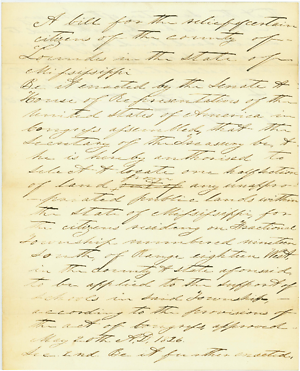 A bill for the relief of certain
citizens of the county of
Lowndes in the State of
Mississippi
Be it enacted by the Senate &
House of Representatives of the
United States of America in
Congress assembled, that the
Secretary of the Treasury be &
he is hereby authorised to
select & locate one half section
of land from any unappro-
priated public lands within
the State of Mississippi for
the citizens residing on Fractional
Township numbered nineteen
South of Range eighteen West
in the county & state aforesaid
to be applied to the support of
schools in said Township
according to the provisions of
the act of Congress approved
May 20th A.D. 1826.
Sec 2nd Be it further enacted,